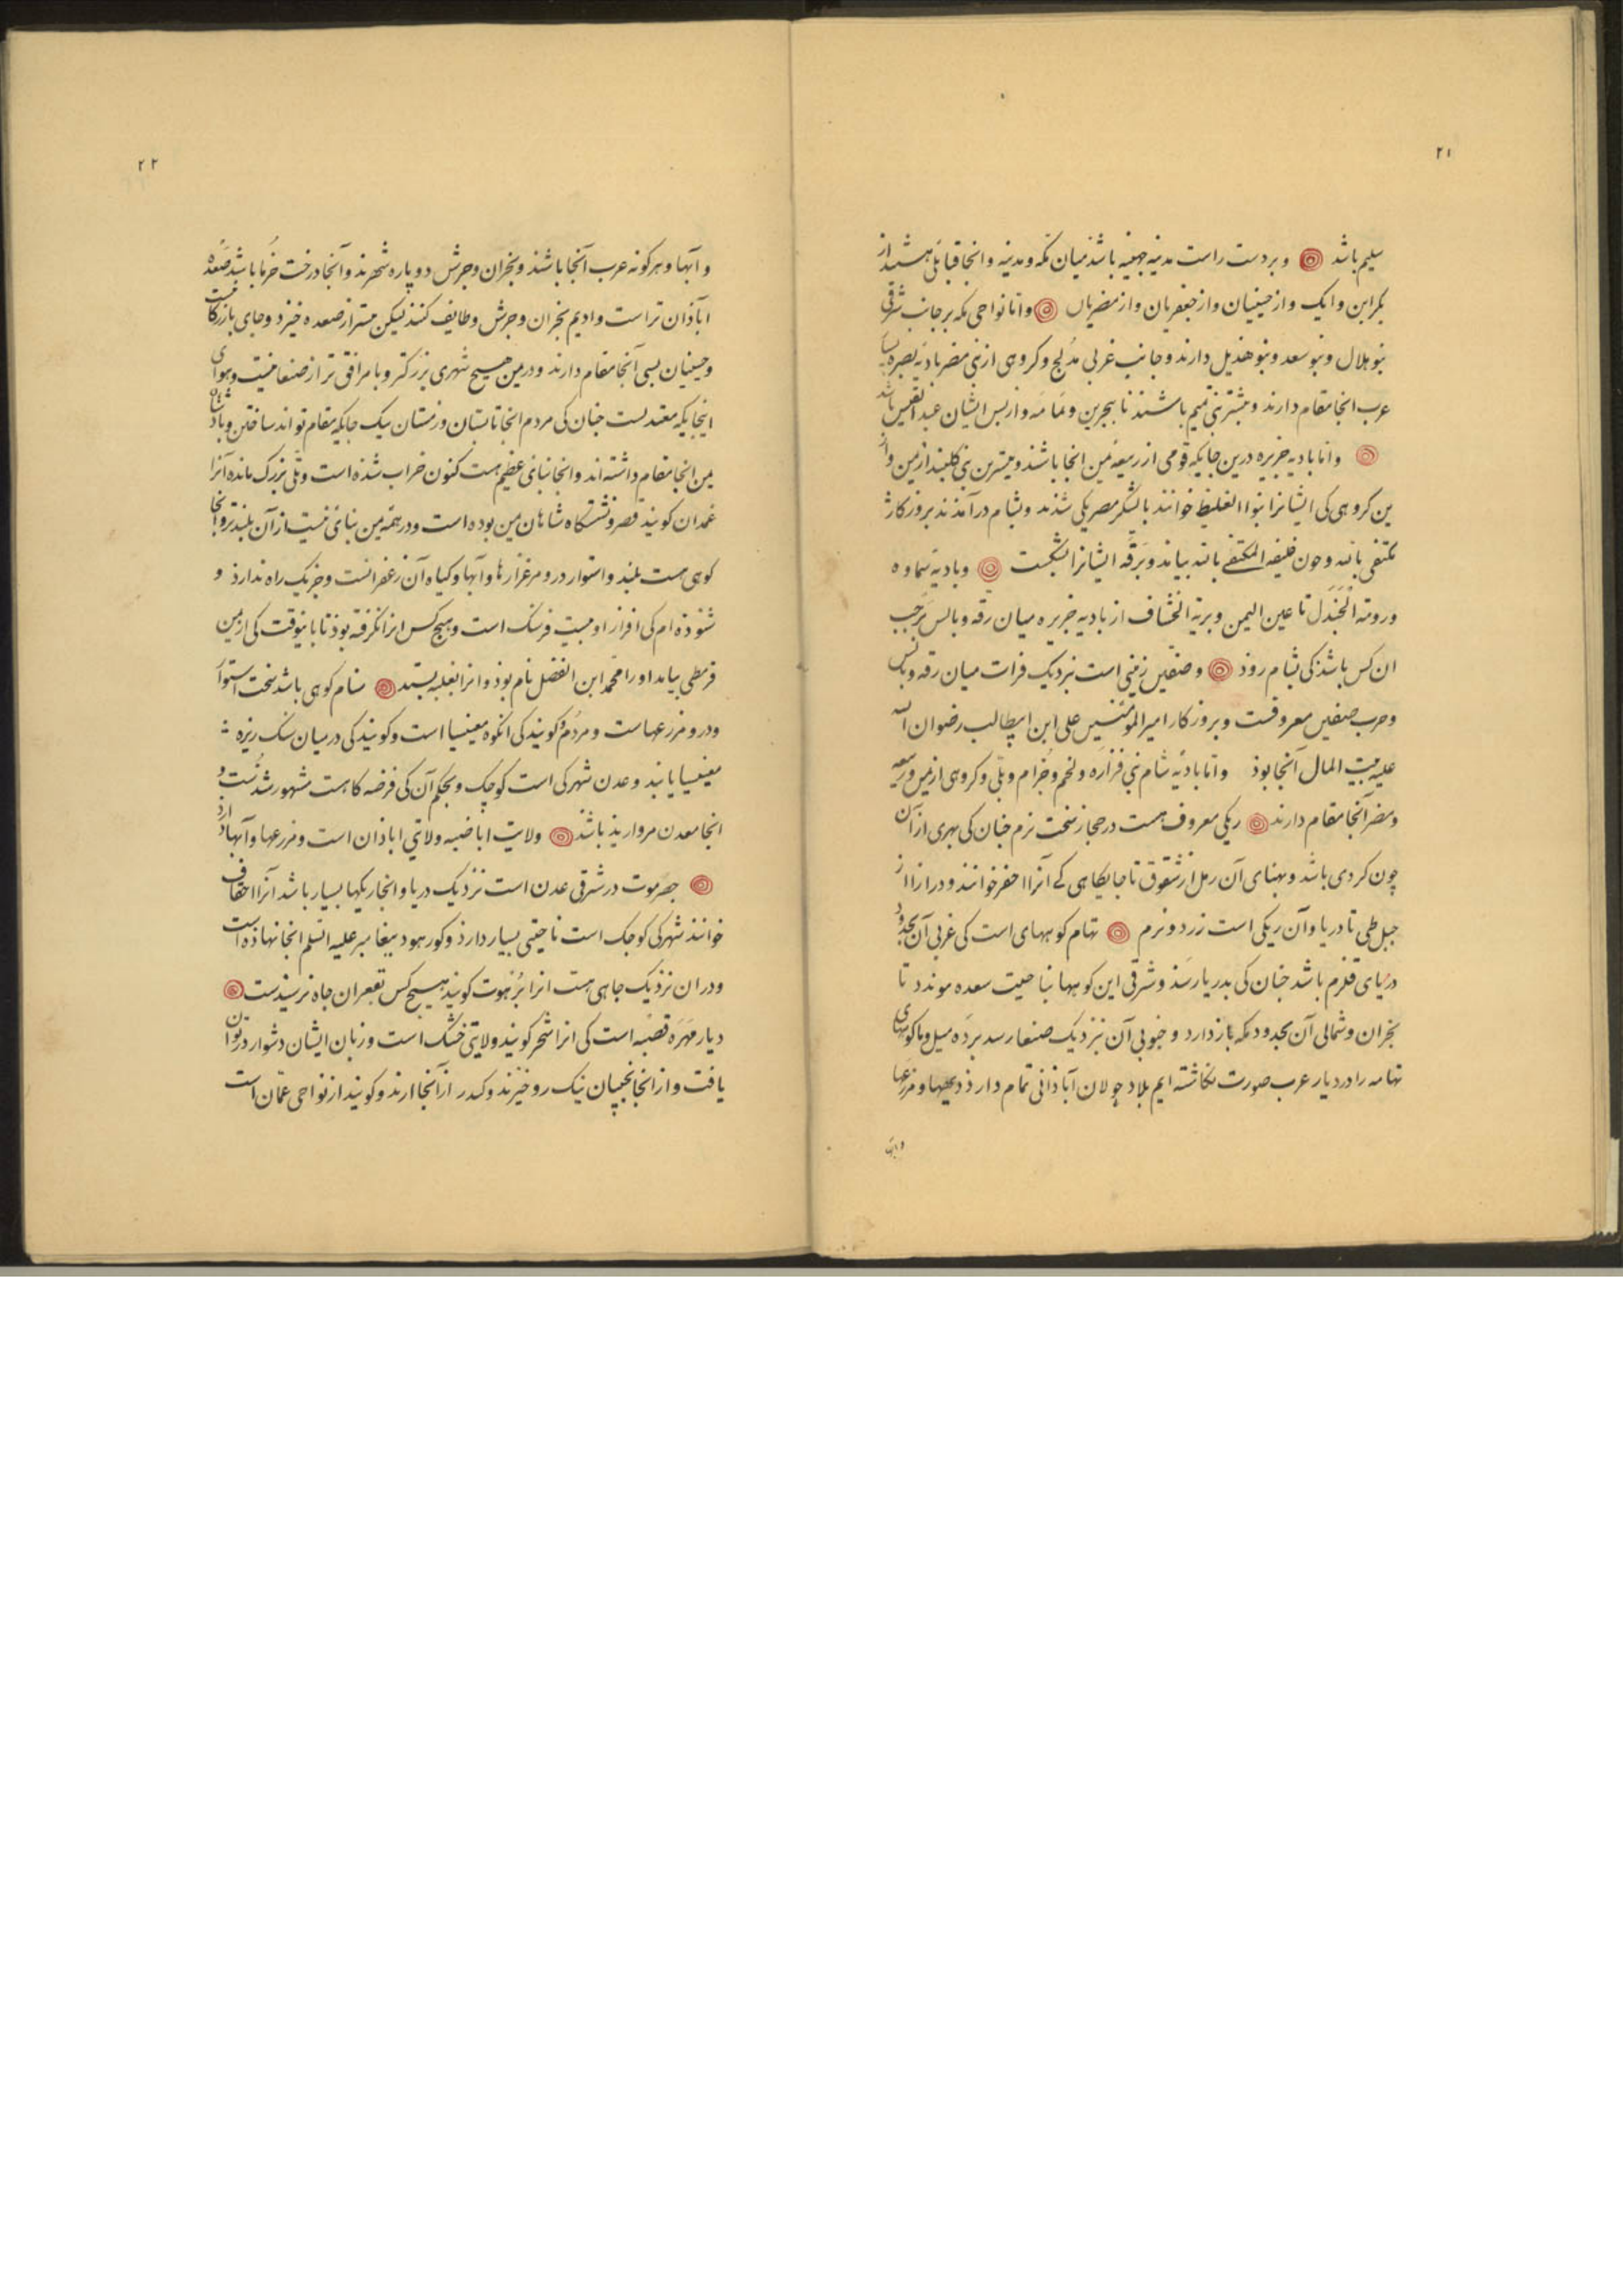 ۲۱
سلیم باشد وبر دست راست مدینه جهینه باشد میان مکه و مدینه و انجا قبایل هستند از
بکر ابن وایک واز حینیان واز جعفریان واز مضریان واتا نواحی مکه بر جانب شرقی
بنو هلال وبنو سعد وبنو هذیل دارند وجانب غربی مدلج وکروهی از بنی مضر بادیه بصره
عرب انجا مقام دارند وبیشتر بنی تمیم باشند تا ببحرین ویمامه واز پس ایشان عبد القیس باشد
واتا بادیه جزیره درین جایکه قومی از ربیعه یمن انجا باشند وبیشترین بنی کلبند از یمن واز
ین کروهی کی ایشانرا بنوا الغلیظ خوانند با لشکر مصر یکی شدند وبشام در آمذند بروزکار
مکتفی بالله وچون خلیفه المکتفی بالله بیاند وبرقه ایشانرا بشکست وبادیه سماوه
ودومة الجندل تا عین الیمن وبریه الخشاف از بادیه جزیره میان رقه وبالس برچپ
ان کس باشذ کی بشام روذ وصفین زمینی است نزدیک فرات میان رقه وبالس
وحرب صفین معروفست وبروزکار امیر المؤمنین علی ابن ابیطالب رضوان الله
علیه بیت المال آنجا بوذ واتا بادیه شام بنی فزاره ولخم وجزام وبلی وکروهی از یمن وربیعه
ومضر آنجا مقام دارند ریکی معروف هست در حجاز سخت نرم چنان کی بهری از آن
چون کردی باشد وپهنای آن رمل از شقوق تا جایکاهی کی آنرا احفر خوانند ودرازا از
جبل طی تا دریا وآن ریکی است زرد ونرم تهام کوههای است کی غربی آن بحدود
دریای قلزم باشد چنان کی بدریا رسذ وشرقی این کوهها بناحیت سعده پیوندد تا
نجران وشمالی آن بحدود مکه باز دارد وجنوبی آن بنزدیک صنعا رسد بر ده میل وما کوههای
تهامه را در دیار عرب صورت نکاشته ایم بلاد خولان آباذانی تمام دارذ دیهها ومزرعها
وآبها
۲۲
وآبها وهر کونه عرب آنجا باشند ونجران وجرش دو پاره شهرند وآنجا درخت خرما باشد صعده
اباذان تر است وادیم نجران وجرش وطایف کنند لیکن بیشتر از صعده خیزد وجای بازرکانانست
وحینیان بسی آنجا مقام دارند ودر یمن هیچ شهری بزرکتر وبا مرافق تر از صنعا نیست وهوای
اینجایکه معتدلست چنان کی مردم انجا تابستان وزمستان بیک جایکه مقام تواند ساختن وپادشاهان
یمن انجا مقام داشته اند وانجا بنای عظیم هست کنون خراب شذه است وتلی بزرک مانده آنرا
غمدان کویند قصر ونشستکاه شاهان یمن بوده است ودر همه یمن بنای نیست از آن بلندتر وانجا
کوهی هست بلند واستوار درو مرغزارها وآبها وکیاه آن زعفرانست وجز یک راه ندارذ و
شنوذه ام کی افراز او بیست فرسنک است وهیچ کس انرا نکرفته بوذ تا باینوقت کی از یمن
قرمطی بیامد او را محمد ابن الفضل نام بوذ وانرا بغلبه بستد شبام کوهی باشد سخت استوار
ودرو مزرعهاست ومردم کویند کی انکوه مغنیسیا است وکویند کی در میان سنک ریزه
مغنیسیا یابند وعدن شهرکی است کوچک وبحکم آن کی فرضه کاهست مشهور شدست و
انجا معدن مروارید باشد ولایت اباضیه ولایتی اباذان است ومزرعها وآبها دارذ
حضرموت در شرقی عدن است نزدیک دریا وانجا ریکها بسیار باشد آنرا احقاف
خوانند شهرکی کوچک است ناحیتی بسیار دارذ وکور هود پیغامبر علیه السلم انجا نهاذه است
ودر ان نزدیک جاهی هست انرا برهوت کویند هیچ کس بقعر ان جاه نرسیذست
دیار مهره قصبه است کی انرا شحر کویند ولایتی خشک است وزبان ایشان دشوار در توان
یافت واز انجا نجیبان نیک رو خیزند وکندر از آنجا ارند وکویند از نواحی عمان است